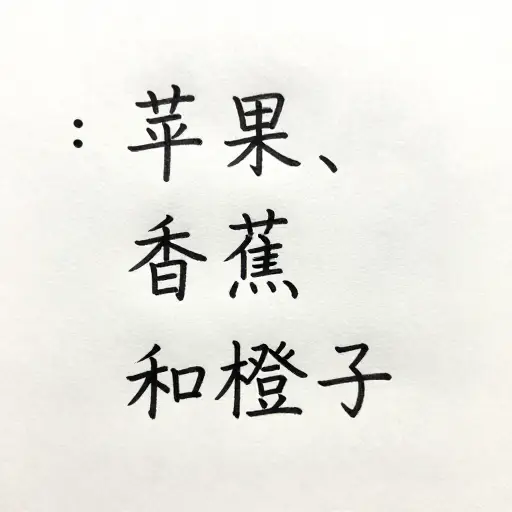 ：苹果、
香蕉
和橙子